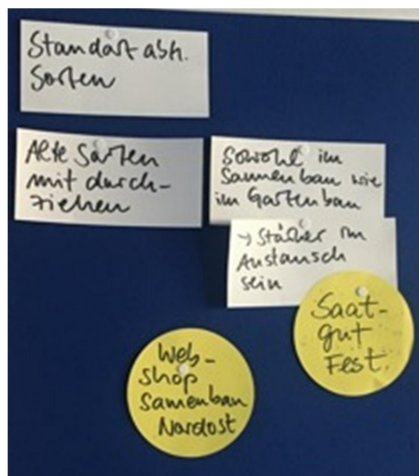 Standort abh.
Sorten
Alte Sorten
mit durch-
ziehen
Sowohl im
Samenbau wie
im Gartenbau
→ Stärker im
Austausch
sein
Saat-
gut
Fest.
Web-
shop
Samenbau
Nordost